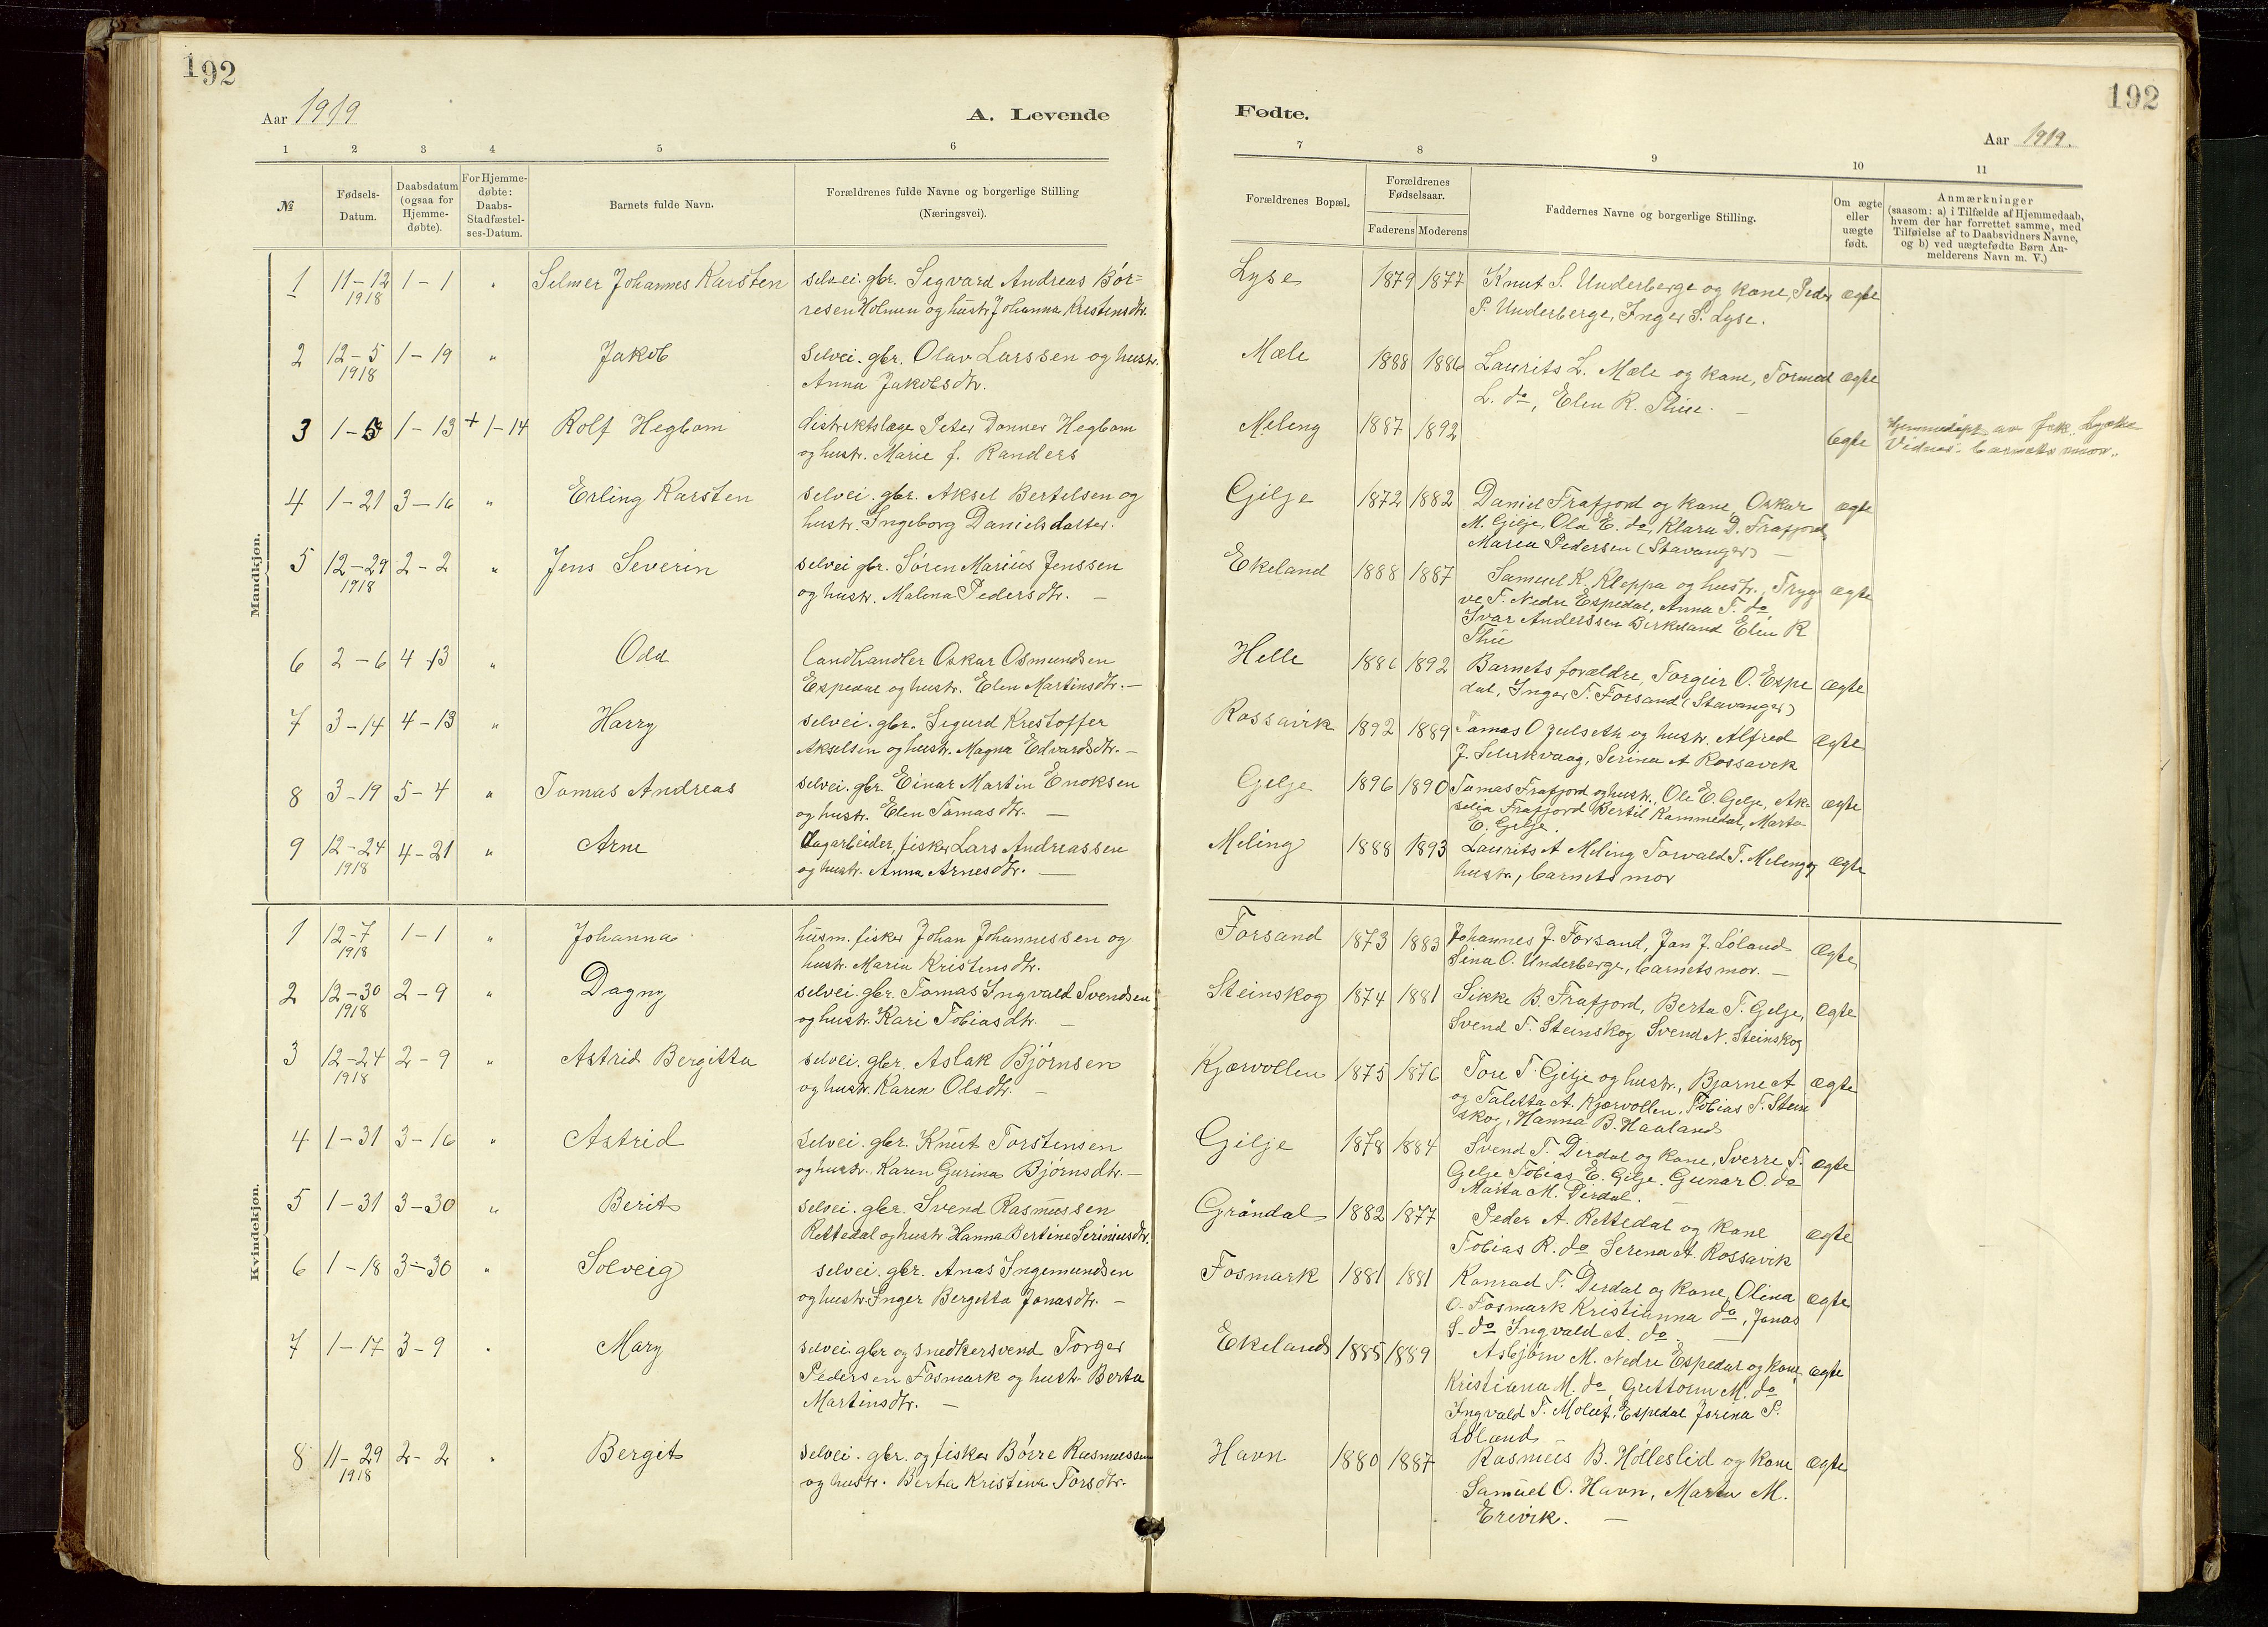 192
Aar 1919
A. Levende
1 2 3 4 5 6
№ Fødsels-Datum. Daabsdatum (ogsaa for Hjemme-døbte). For Hjemme-døbte: Daabs-Stadfæstel-ses-Datum. Barnets fulde Navn. Forældrenes fulde Navne og borgerlige Stilling (Næringsvei).
Mandkjøn.
1 11-12 1918 1-1 " Selmer Johannes Karsten selvei. gbr. Sigvard Andreas Bør=
resen Holmen og hustr. Johanna Kristensdtr.
2 12-5 1918 1-19 " Jakob selvei. gbr. Olav Larssen og hustr.
Anna Jakobsdtr.
3 1-5 1-13 + 1-14 Rolf Hegbom distriktslæge Peter Donner Hegbom
og hustr. Marie f. Randers
4 1-21 3-16 " Erling Karsten selvei. gbr. Aksel Bertelsen og
hustr. Ingeborg Danielsdatter.
5 12-29 1918 2-2 " Jens Severin selvei gbr. Søren Marius Jenssen
og hustr. Malena Pedersdtr. —
6 2-6 4-13 " Odd landhandler Oskar Osmundsen
Espedal og hustr. Elen Martinsdtr. —
7 3-14 4-13 " Harry selvei. gbr. Sigurd Krestoffer
Akselsen og hustr. Magna Edvardsdtr. —
8 3-19 5-4 " Tomas Andreas selvei. gbr Einar Martin Enoksen
og hustr. Elen Tomasdtr. —
9 12-24 1918 4-21 " Arne Dagarbeider, fisker Lars Andreassen
og hustr. Anna Arnesdtr. —
Kvindekjøn.
1 12-7 1918 1-1 " Johanna husm. fisker Johan Johannessen og
hustr. Maria Kristensdtr.
2 12-30 1918 2-9 " Dagny selvei. gbr. Tomas Ingvald Svendsen
og hustr. Kari Tobiasdtr. —
3 12-24 1918 2-9 " Astrid Bergitta selvei. gbr. Aslak Bjørnsen
og hustr. Karen Olsdtr. —
4 1-31 3-16 " Astrid selvei. gbr. Knut Torstensen
og hustr. Karen Gurina Bjørnsdtr. —
5 1-31 3-30 " Berit selvei. gbr. Svend Rasmussen
Rettedal og hustr Hanna Bertine Seriniusdtr.
6 1-18 3-30 " Solveig selvei. gbr. Anas Ingemundsen
og hustr. Inger Bergitta Jonasdtr. —
7 1-17 3-9 " Mary selvei. gbr og snedkersvend Torger
Pedersen Fosmark og hustr Berta
Martinsdtr. —
8 11-29 1918 2-2 " Bergit selvei. gbr. og fisker Børre Rasmussen
og hustr. Berta Kristina Torsdtr.
192
Fødte.
Aar 1919.
7 8 9 10 11
Forældrenes Bopæl. Forældrenes Fødselsaar. Faderens Moderens Faddernes Navne og borgerlige Stilling. Om ægte eller uægte født. Anmærkninger (saasom: a) i Tilfælde af Hjemmedaab, hvem der har forrettet samme, med Tilføielse af to Daabsvidners Navne, og b) ved uægtefødte Børn Anmelderens Navn m. V.)
Lyse 1879 1877 Knut S. Underberge og kone, Peder ægte
P. Underberge, Inger S. Lyse.
Mæle 1888 1886 Laurits L. Mæle og kone, Tormod ægte
L. do, Elen R. Thue. —
Meling 1887 1892 ægte Hjemmedøpt av frk. Lycke
Vidner: barnets mor..
Gilje 1872 1882 Daniel Frafjord og kone, Oskar ægte
M. Gilje, Ola E. do, Klara D. Frafjord,
Maria Pedersen (Stavanger) —
Ekeland 1888 1887 Samuel K. Kleppa og hustr., Tryg ægte
ve T. Nedre Espedal, Anna T. do
Ivar Anderssen Birkeland Elin R
Thue
Helle 1886 1892 Barnets forældre, Torgeir O. Espe ægte
dal, Inger T. Forsand (Stavanger)
Rossavik 1892 1889 Tomas O. Julseth og hustr. Alfred ægte
J. Selukvaag, Serina A Rossavik
Gilje 1896 1890 Tomas Frafjord og hustr., Ole E. Gilje, Ak- ægte
selia Frafjord Bertil Kommedal, Marta
E. Gilje.
Meling 1888 1893 Laurits A Meling Torvald T. Meling og ægte
hustr., barnets mor
Forsand 1873 1883 Johannes J. Forsand, Jan J. Løland ægte
Sina O. Underberge, barnets mor. —
Steinskog 1874 1881 Sikke B. Frafjord, Berta T. Gilje, ægte
Svend T. Steinskog Svend N. Steinskog
Kjærvollen 1875 1876 Tore T. Gilje og hustr., Bjarne A ægte
og Taletta A. Kjærvollen, Tobias T. Stein
skog, Hanna B. Haaland
Gilje 1878 1884 Svend T. Dirdal og kone, Sverre T. ægte
Gilje Tobias E. Gilje. Gunar O. do
Marta M. Dirdal. —
Grøndal 1882 1877 Peder A. Rettedal og kone ægte
Tobias R. do Serena A. Rossavik
Fosmark 1881 1881 Konrad T. Dirdal og kone, Olina ægte
O. Fosmark Kristianna do, Jonas
S. do Ingvald A. do. —
Ekeland 1885 1889 Asbjørn M. Nedre Espedal og kone, ægte
Kristiana M. do, Guttorm M. do
Ingvald T. Molauf. Espedal Jorina P.
Løland
Havn 1880 1887 Rasmus B. Holleslid og kone ægte
Samuel O. Havn, Marta M.
Erevik. —